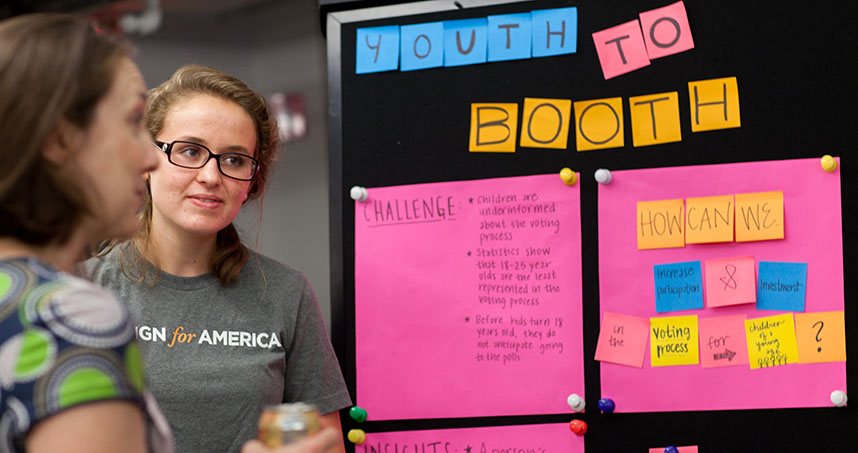 YOUTH TO
BOOTH
CHALLENGE:
* Children are
underinformed
about the voting
process
* Statistics show
that 18-25 year
olds are the least
represented in the
voting process
* Before kids turn 18
years old, they do
not anticipate going
to the polls.
INSIGHTS: * A person's
HOW CAN WE
Increase
participation
&
Investment
in the
Voting
process
for
children of
a young
age
?
IGN for AMERICA